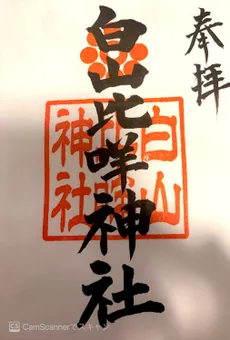 奉拝
白山比咩神社
白山
比咩
神社
CamScannerでスキャン